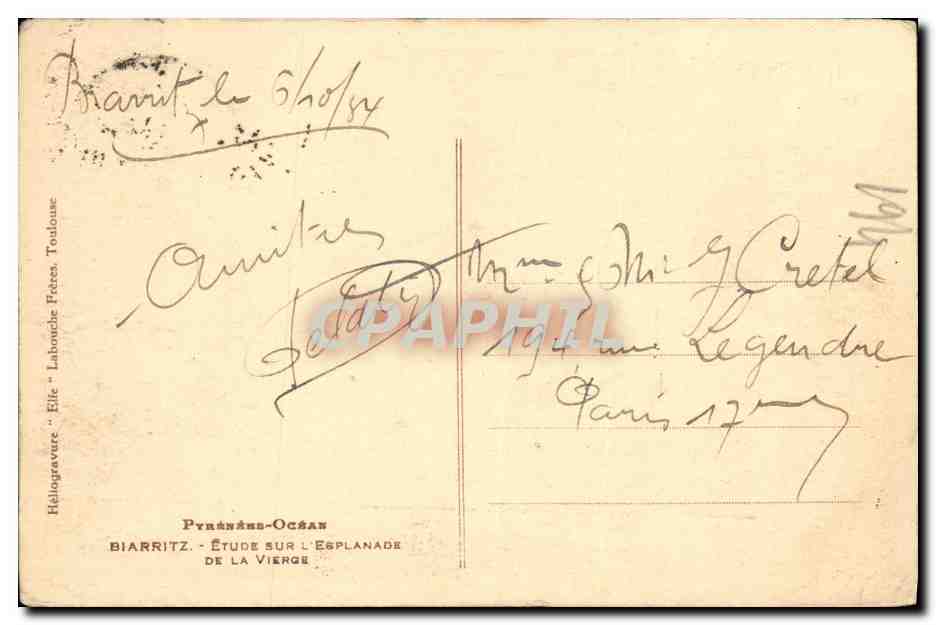 Biarritz le 6/10/34
Amitiés
CPAPHIL
Mme & Mr Cretel
194 rue Legendre
Paris 17me
194
Héliogravure " Elfe " Labouche Frères, Toulouse
PYRÉNÉES-OCÉAN
BIARRITZ. - ÉTUDE SUR L'ESPLANADE
DE LA VIERGE